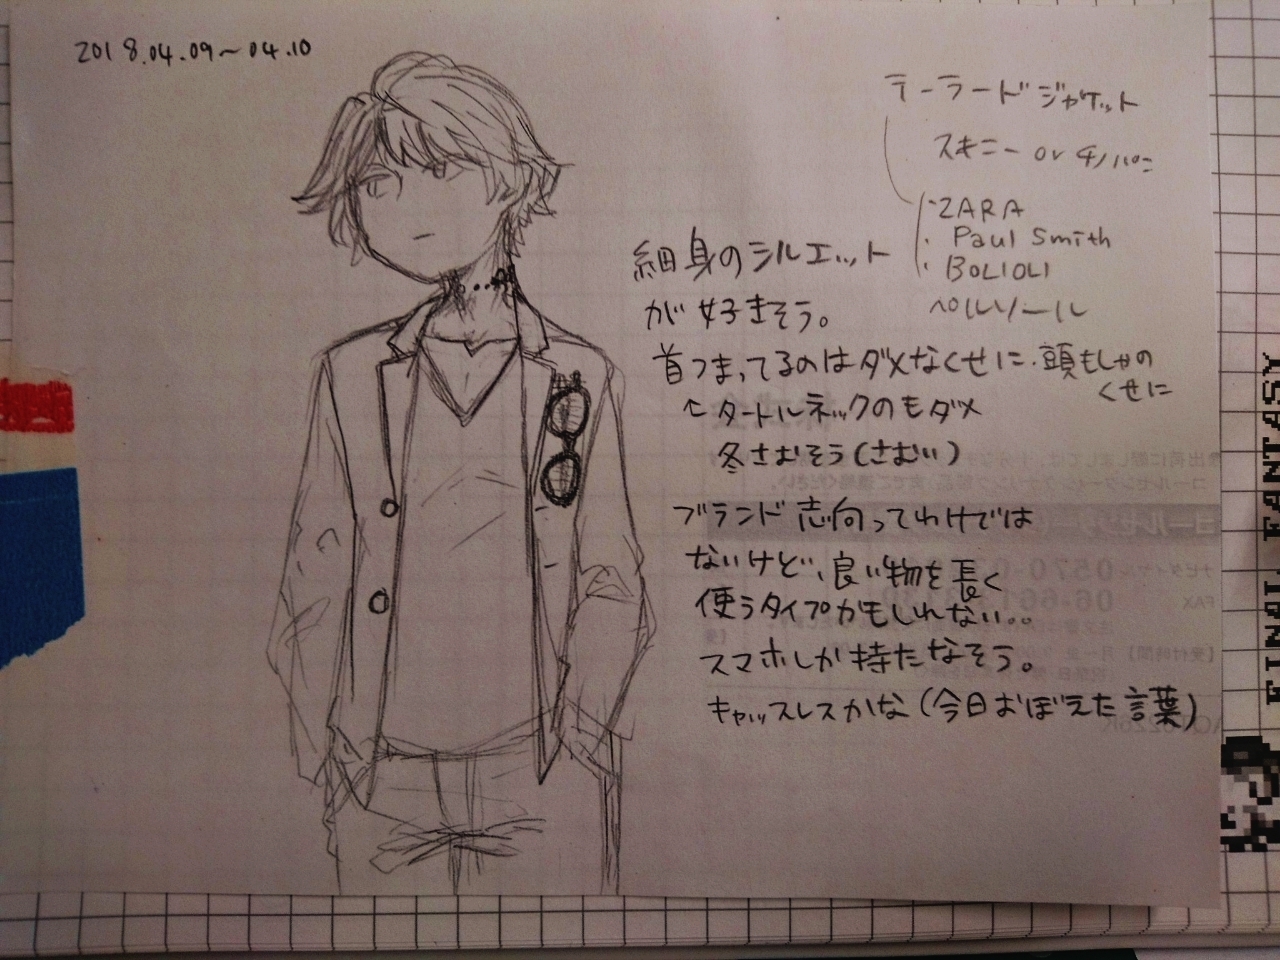 2018.04.09〜04.10
テーラードジャケット
スキニー or チノパン
・ZARA
・Paul Smith
・BOLIOLI
ペルソール
細身のシルエット
が好きそう。
首つまってるのはダメなくせに・頭もしゃの
くせに
↑タートルネックのもダメ
冬さむそう(さむい)
ブランド志向ってわけでは
ないけど、良い物を長く
使うタイプかもしれない。。
スマホしか持たなそう。
キャッスレスかな(今日おぼえた言葉)